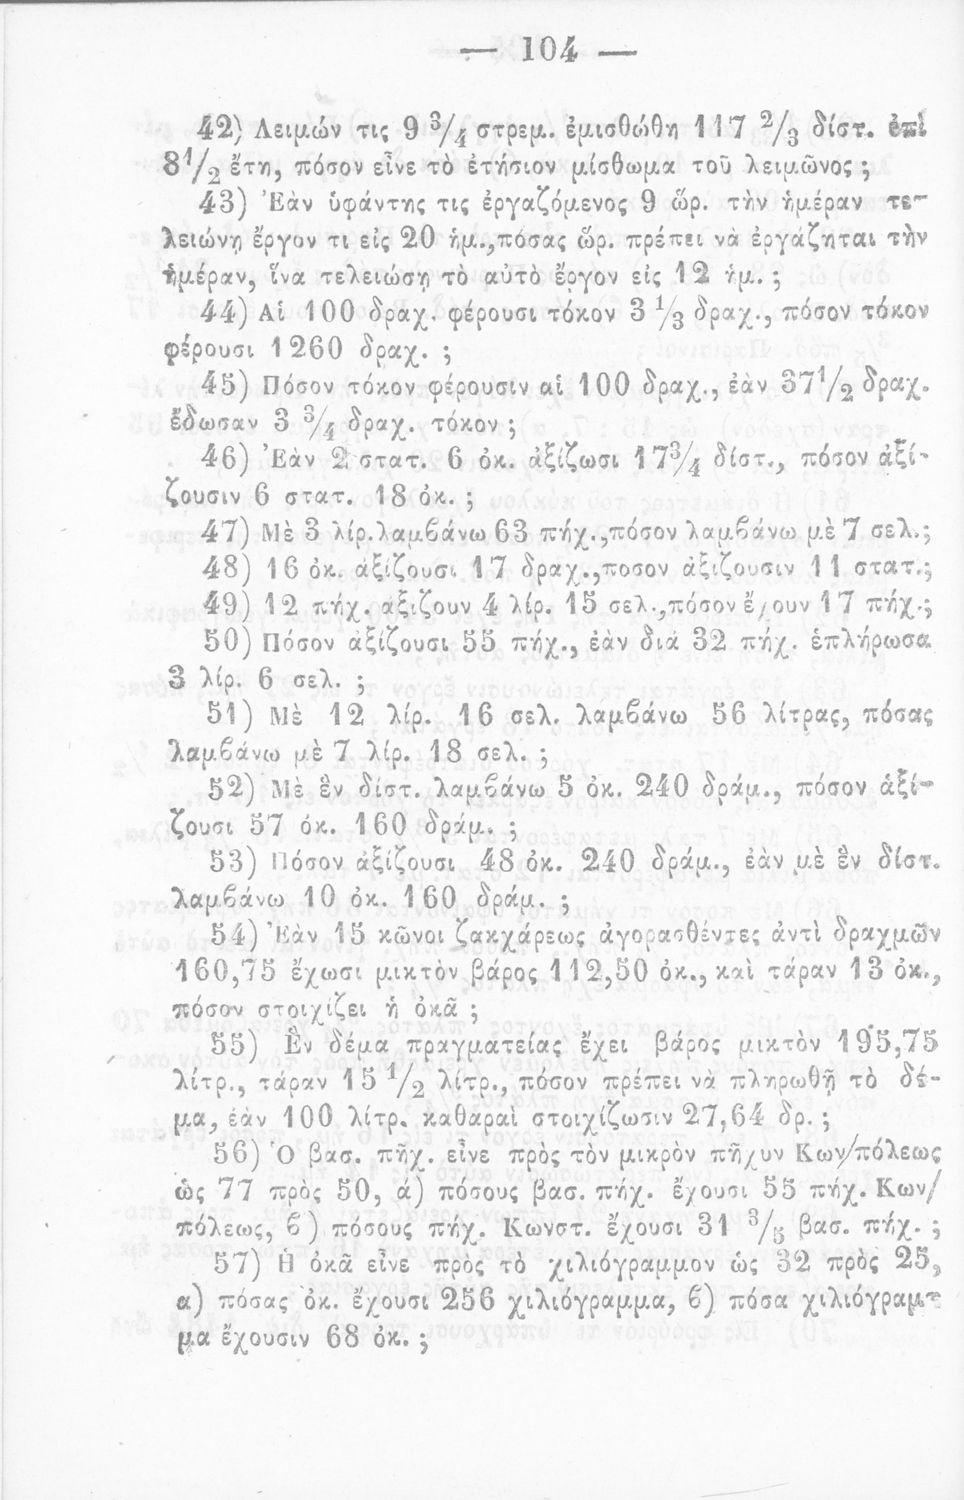 — 104 —
42) Λειμών τις 9 3/4 στρεμ. ἐμισθώθη 117 2/3 δίστ. ἐπὶ
8 1/2 ἔτη, πόσον εἶνε τὸ ἐτήσιον μίσθωμα τοῦ λειμῶνος ;
43) Ἐὰν ὑφάντης τις ἐργαζόμενος 9 ὥρ. τὴν ἡμέραν τε-
λειώνῃ ἔργον τι εἰς 20 ἡμ.,πόσας ὥρ. πρέπει νὰ ἐργάζηται τὴν
ἡμέραν, ἵνα τελειώσῃ τὸ αὐτὸ ἔργον εἰς 12 ἡμ. ;
44) Αἱ 100 δραχ. φέρουσι τόκον 3 1/3 δραχ., πόσον τόκον
φέρουσι 1260 δραχ. ;
45) Πόσον τόκον φέρουσιν αἱ 100 δραχ., ἐὰν 37 1/2 δραχ.
ἔδωσαν 3 3/4 δραχ. τόκον ;
46) Ἐὰν 2 στατ. 6 ὀκ. ἀξίζωσι 17 3/4 δίστ., πόσον ἀξί-
ζουσιν 6 στατ. 18 ὀκ. ;
47) Μὲ 3 λίρ.λαμϐάνω 63 πήχ.,πόσον λαμϐάνω μὲ 7 σελ.;
48) 16 ὀκ. ἀξίζουσι 17 δραχ.,ποσον ἀξιζουσιν 11 στατ.;
49) 12 πήχ. ἀξιζουν 4 λίρ. 15 σελ.,πόσον ἔχουν 17 πήχ.;
50) Πόσον ἀξίζουσι 55 πήχ., ἐὰν διὰ 32 πήχ. ἐπλήρωσα
3 λίρ. 6 σελ. ;
51) Μὲ 12 λίρ. 16 σελ. λαμϐάνω 56 λίτρας, πόσας
λαμϐάνω μὲ 7 λίρ. 18 σελ. ;
52) Μὲ ἓν δίστ. λαμϐάνω 5 ὀκ. 240 δράμ., πόσον ἀξί-
ζουσι 57 ὀκ. 160 δράμ. ;
53) Πόσον ἀξίζουσι 48 ὀκ. 240 δράμ., ἐὰν μὲ ἓν δίστ.
λαμϐάνω 10 ὀκ. 160 δράμ. ;
54) Ἐὰν 15 κῶνοι ζακχάρεως ἀγορασθέντες ἀντὶ δραχμῶν
160,75 ἔχωσι μικτὸν βάρος 112,50 ὀκ., καὶ τάραν 13 ὀκ.,
πόσον στοιχίζει ἡ ὀκᾶ ;
55) Ἓν δέμα πραγματείας ἔχει βάρος μικτὸν 195,75
λίτρ., τάραν 15 1/2 λίτρ., πόσον πρέπει νὰ πληρωθῇ τὸ δέ-
μα, ἐὰν 100 λίτρ. καθαραὶ στοιχίζωσιν 27,64 δρ. ;
56) Ὁ βασ. πῆχ. εἶνε πρὸς τὸν μικρὸν πῆχυν Κων/πόλεως
ὡς 77 πρὸς 50, α) πόσους βασ. πήχ. ἔχουσι 55 πήχ. Κων/
πόλεως, ϐ) πόσους πήχ. Κωνστ. ἔχουσι 31 3/5 βασ. πήχ. ;
57) Ἡ ὀκᾶ εἶνε πρὸς τὸ χιλιόγραμμον ὡς 32 πρὸς 25,
α) πόσας ὀκ. ἔχουσι 256 χιλιόγραμμα, ϐ) πόσα χιλιόγραμ-
μα ἔχουσιν 68 ὀκ. ;